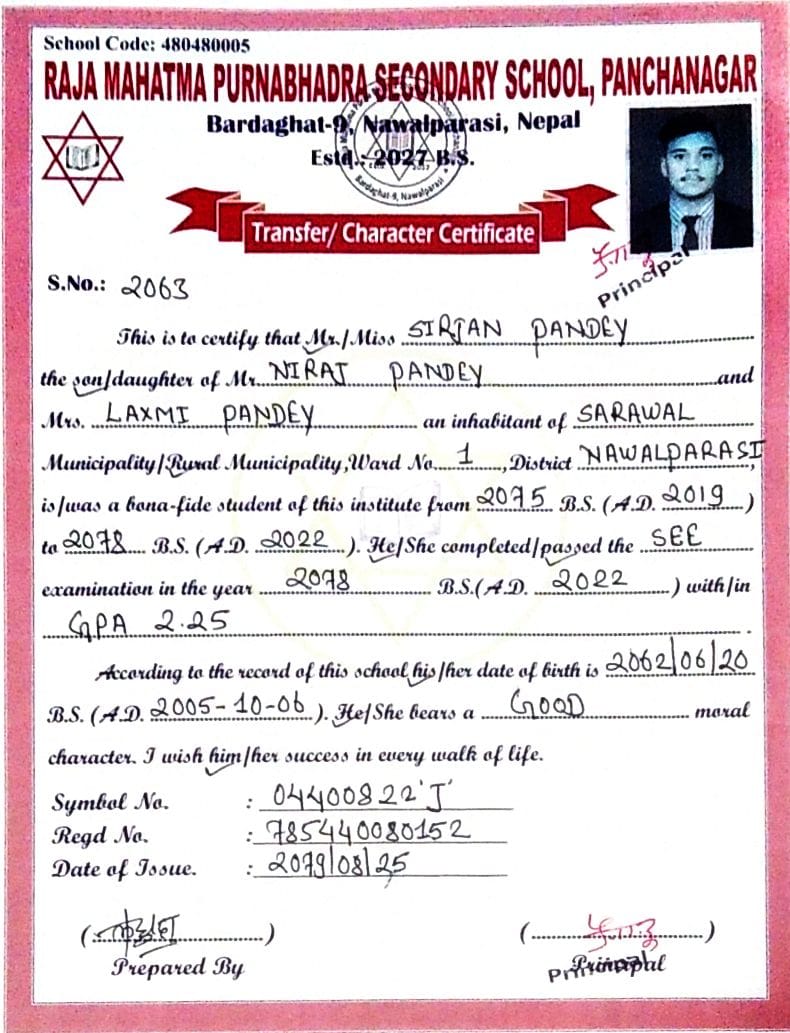 School Code: 480480005
RAJA MAHATMA PURNABHADRA SECONDARY SCHOOL, PANCHANAGAR
Bardaghat-9, Nawalparasi, Nepal
Estd.: 2027 B.S.
Bardaghat-9, Nawalparasi
Transfer/ Character Certificate
Principal
S.No.: 2063
This is to certify that Mr./Miss SIRJAN PANDEY
the son/daughter of Mr. NIRAJ PANDEY and
Mrs. LAXMI PANDEY an inhabitant of SARAWAL
Municipality/Rural Municipality,Ward No. 1, District NAWALPARASI,
is/was a bona-fide student of this institute from 2075 B.S. (A.D. 2019)
to 2078 B.S. (A.D. 2022). He/She completed/passed the SEE
examination in the year 2078 B.S.(A.D. 2022) with/in
GPA 2.25
According to the record of this school his/her date of birth is 2062/06/20
B.S. (A.D. 2005-10-06). He/She bears a GOOD moral
character. I wish him/her success in every walk of life.
Symbol No. : 04400822'J'
Regd No. : 785440080152
Date of Issue. : 2079/08/25
(..........) (..........)
Prepared By Principal
Principal